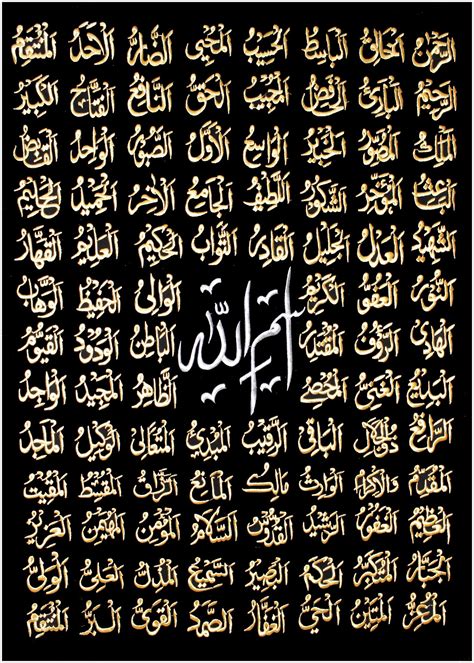 الرحمن الخالق الباسط الحسيب المحيي الضار الأحد المنتقم
الرحيم البارئ الخافض المجيب الحق النافع الفتاح الكبير
الملك المصور الخبير الواسع الأول الصبور الواحد القابض
الباعث المؤخر الشكور اللطيف الجامع الآخر الحميد الحليم
الشهيد العدل الجليل القادر التواب الحكيم العليم القهار
النور العفو الكريم الوالي الحفيظ الوهاب
الهادي الرؤف المقتدر بسم الله الباطن الودود القيوم
البديع الغني المحصي الظاهر المجيد الواجد
الرافع ذو الجلال الباقي الرقيب المبدئ المتعالي الوكيل الماجد
المقدم والاكرام الوارث مالك المانع الرزاق المقسط المقيت
العظيم الغفور الرشيد القدوس السلام المؤمن المهيمن العزيز
الجبار المتكبر الحكم البصير السميع المذل العلي الولي
المعز المتين الحي الغفار الصمد القوي البر المنتقم